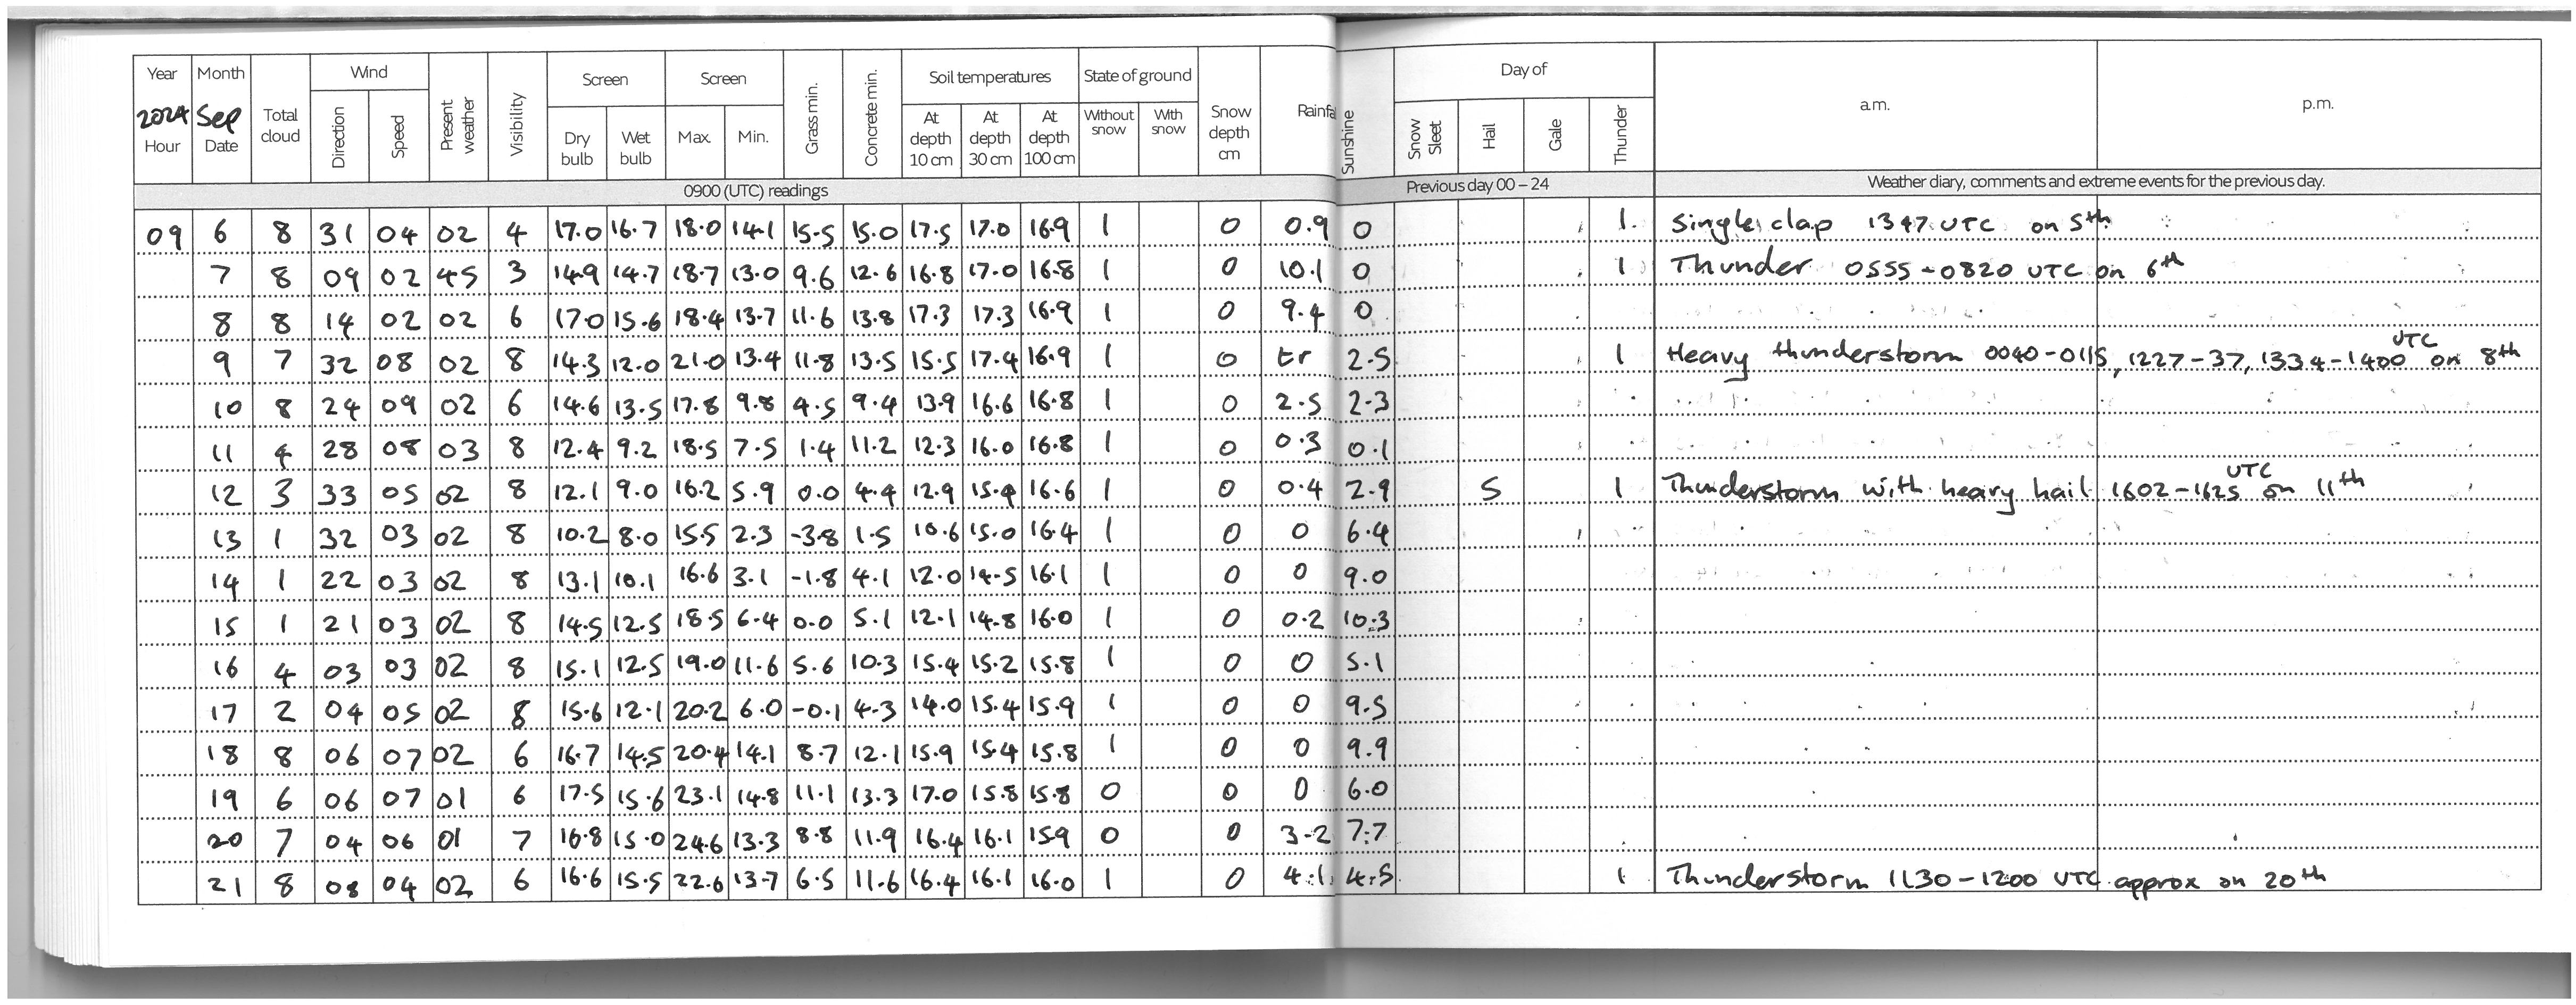 Year Month Total cloud Wind Present weather Visibility Screen Screen Grass min. Concrete min. Soil temperatures State of ground Snow depth cm Rainfa Sunshine Day of a.m. p.m.
2024 Sep Direction Speed Dry bulb Wet bulb Max. Min. At depth 10 cm At depth 30 cm At depth 100 cm Without snow With snow Snow Sleet Hail Gale Thunder
Hour Date
0900 (UTC) readings Previous day 00 – 24 Weather diary, comments and extreme events for the previous day.
09 6 8 31 04 02 4 17.0 16.7 18.0 14.1 15.5 15.0 17.5 17.0 16.9 1 0 0.9 0 1 Single clap 1347 UTC on 5th
7 8 09 02 45 3 14.9 14.7 18.7 13.0 9.6 12.6 16.8 17.0 16.8 1 0 10.1 0 1 Thunder 0555-0820 UTC on 6th
8 8 14 02 02 6 17.0 15.6 18.4 13.7 11.6 13.8 17.3 17.3 16.9 1 0 9.4 0
9 7 32 08 02 8 14.3 12.0 21.0 13.4 11.8 13.5 15.5 17.4 16.9 1 0 tr 2.5 1 Heavy thunderstorm 0040-0115, 1227-37, 1334-1400 UTC on 8th
10 8 24 09 02 6 14.6 13.5 17.8 9.8 4.5 9.4 13.9 16.6 16.8 1 0 2.5 2.3
11 4 28 08 03 8 12.4 9.2 18.5 7.5 1.4 11.2 12.3 16.0 16.8 1 0 0.3 0.1
12 3 33 05 02 8 12.1 9.0 16.2 5.9 0.0 4.4 12.9 15.9 16.6 1 0 0.4 2.9 5 1 Thunderstorm with heavy hail 1602-1625 UTC on 11th
13 1 32 03 02 8 10.2 8.0 15.5 2.3 -3.8 1.5 10.6 15.0 16.4 1 0 0 6.4
14 1 22 03 02 8 13.1 10.1 16.6 3.1 -1.8 4.1 12.0 14.5 16.1 1 0 0 9.0
15 1 21 03 02 8 14.5 12.5 18.5 6.4 0.0 5.1 12.1 14.8 16.0 1 0 0.2 10.3
16 4 03 03 02 8 15.1 12.5 19.0 11.6 5.6 10.3 15.4 15.2 15.8 1 0 0 5.1
17 2 04 05 02 8 15.6 12.1 20.2 6.0 -0.1 4.3 14.0 15.4 15.9 1 0 0 9.5
18 8 06 07 02 6 16.7 14.5 20.4 14.1 8.7 12.1 15.9 15.4 15.8 1 0 0 9.9
19 6 06 07 01 6 17.5 15.6 23.1 14.8 11.1 13.3 17.0 15.8 15.8 0 0 0 6.0
20 7 04 06 01 7 16.8 15.0 24.6 13.3 8.8 11.9 16.4 16.1 15.9 0 0 3.2 7.7
21 8 08 04 02 6 16.6 15.5 22.6 13.7 6.5 11.6 16.4 16.1 16.0 1 0 4.1 4.5 1 Thunderstorm 1130-1200 UTC approx on 20th